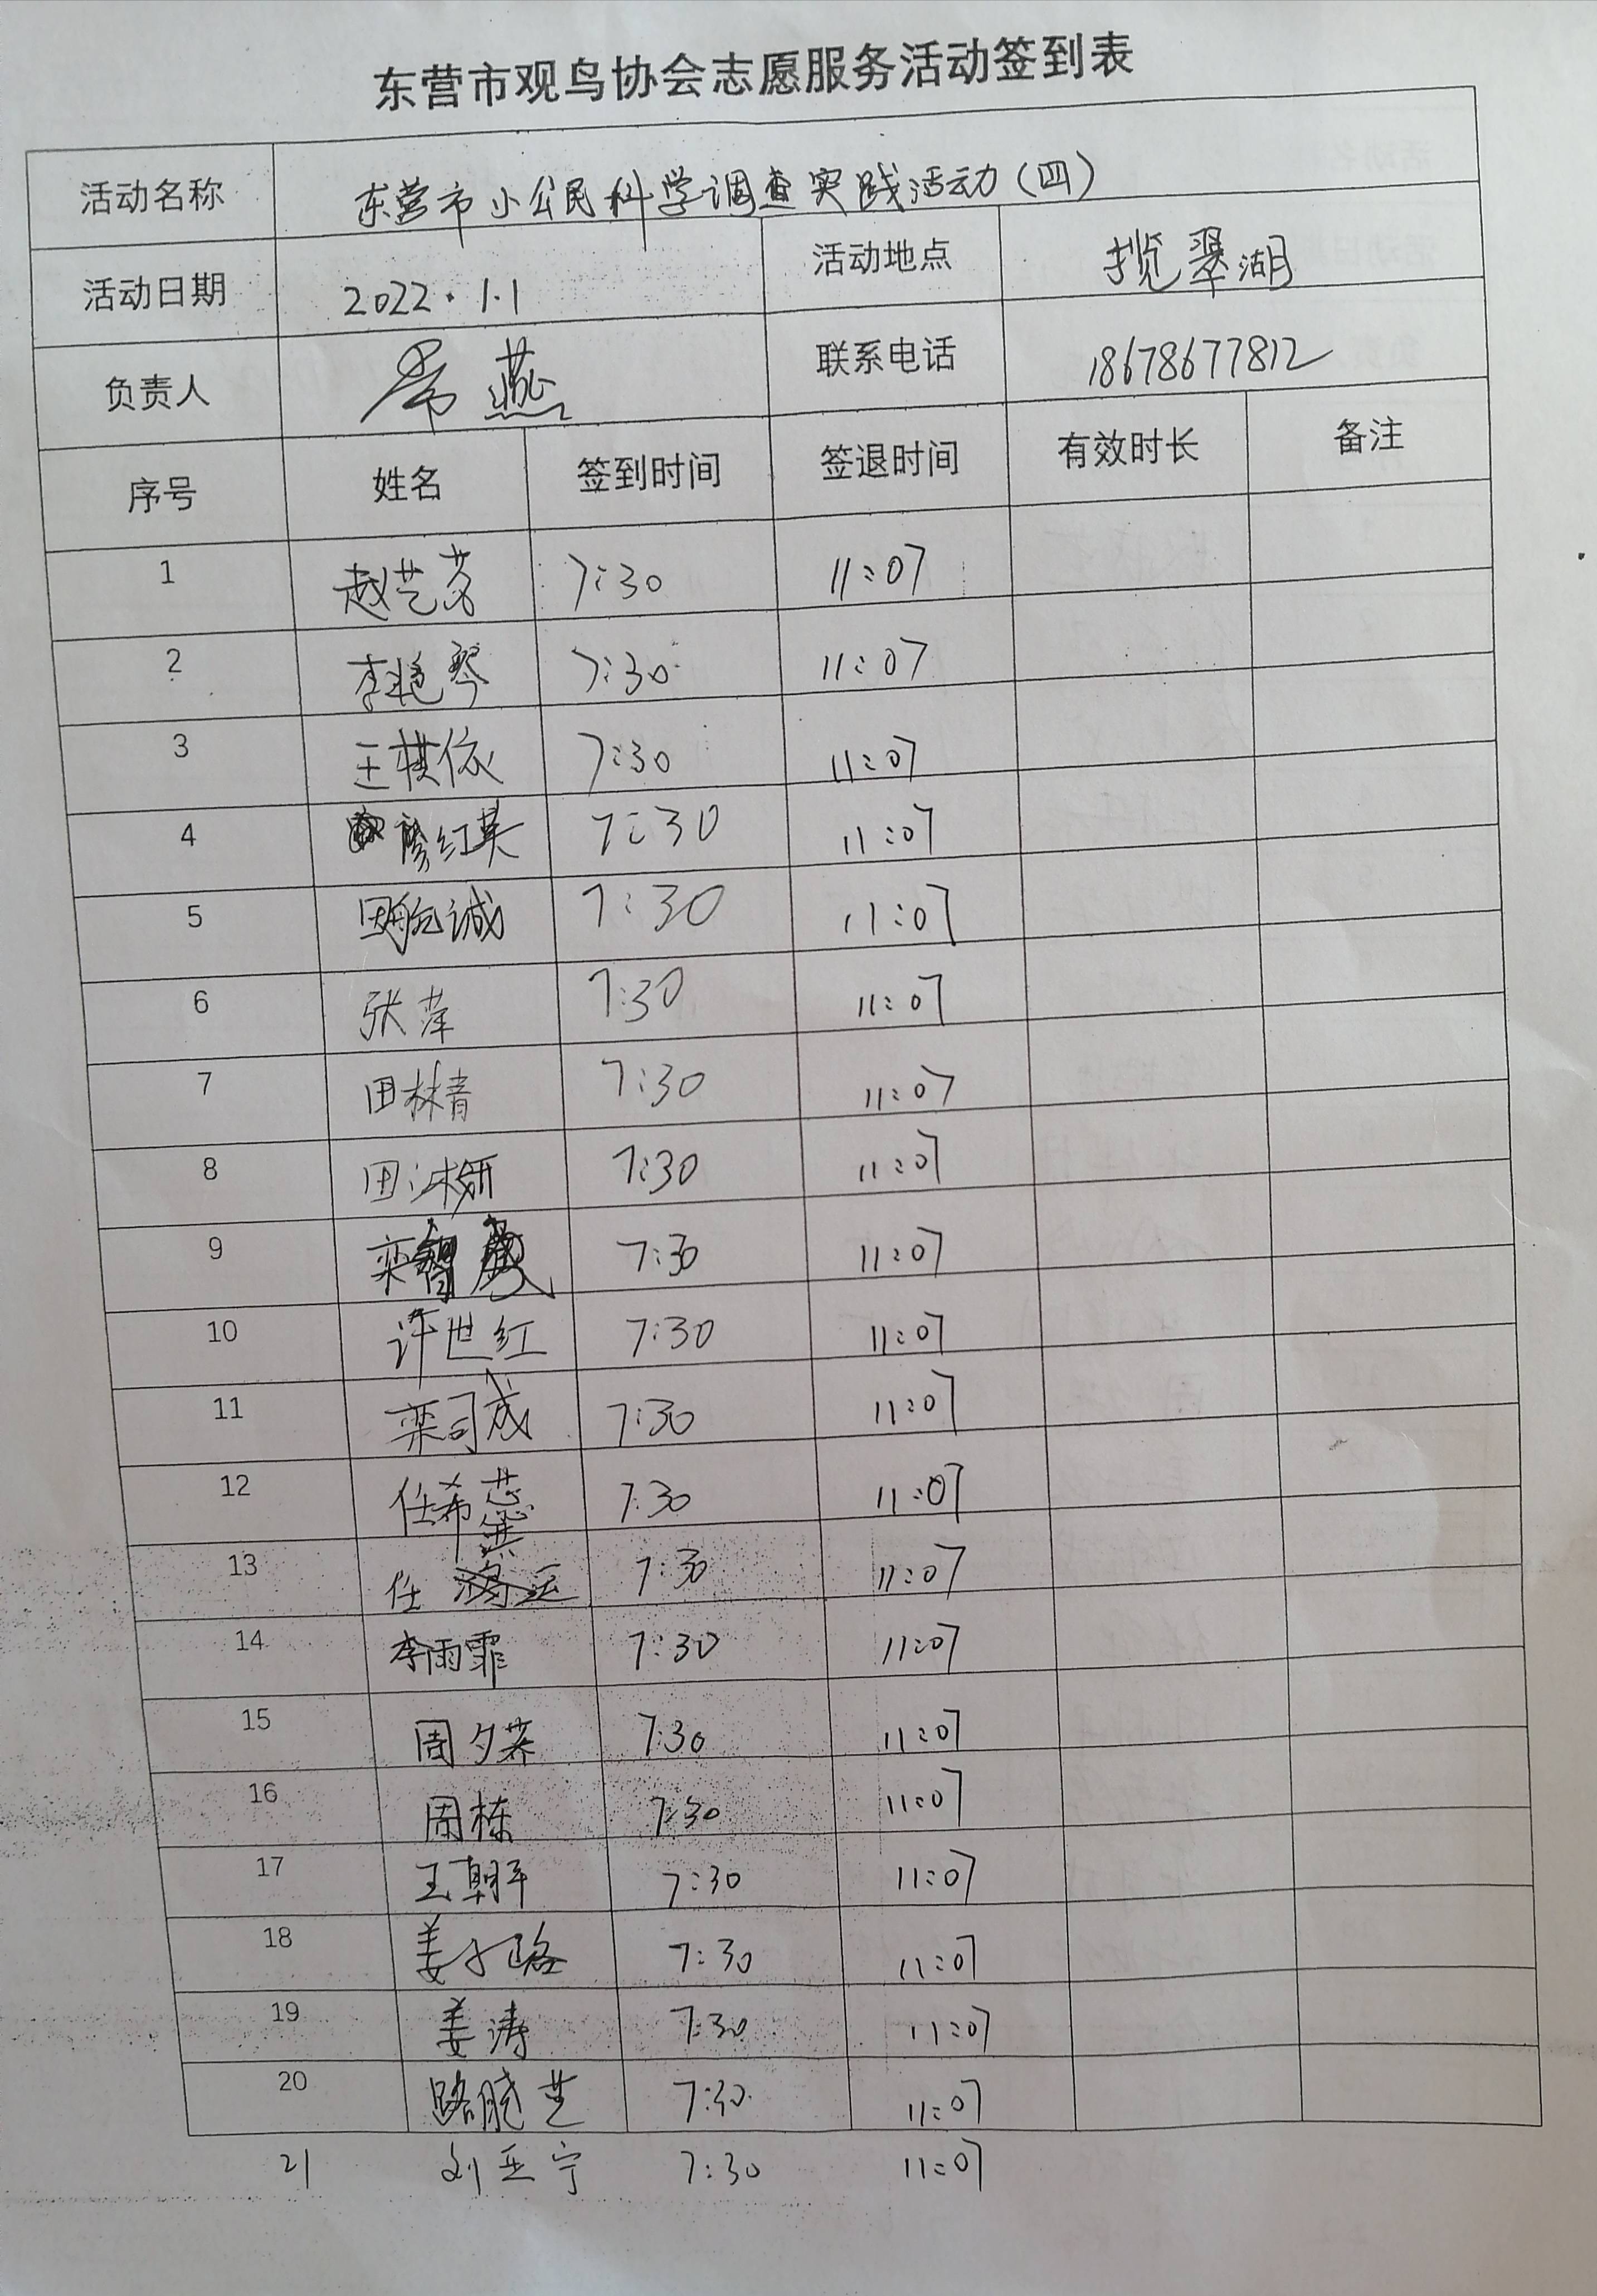 东营市观鸟协会志愿服务活动签到表
活动名称 东营市小公民科学调查实践活动(四)
活动日期 2022.1.1 活动地点 揽翠湖
负责人 常燕 联系电话 18678677812
序号 姓名 签到时间 签退时间 有效时长 备注
1 赵艺芳 7:30 11:07
2 李艳琴 7:30 11:07
3 王棋依 7:30 11:07
4 廖红英 7:30 11:07
5 田皓诚 7:30 11:07
6 张萍 7:30 11:07
7 田林青 7:30 11:07
8 田沐妍 7:30 11:07
9 栾智 7:30 11:07
10 许世红 7:30 11:07
11 栾司成 7:30 11:07
12 任希蕊 7:30 11:07
13 任 7:30 11:07
14 李雨霏 7:30 11:07
15 周夕荞 7:30 11:07
16 周栋 7:30 11:07
17 王朝平 7:30 11:07
18 姜子路 7:30 11:07
19 姜涛 7:30 11:07
20 路晓芝 7:30 11:07
21 刘亚宁 7:30 11:07